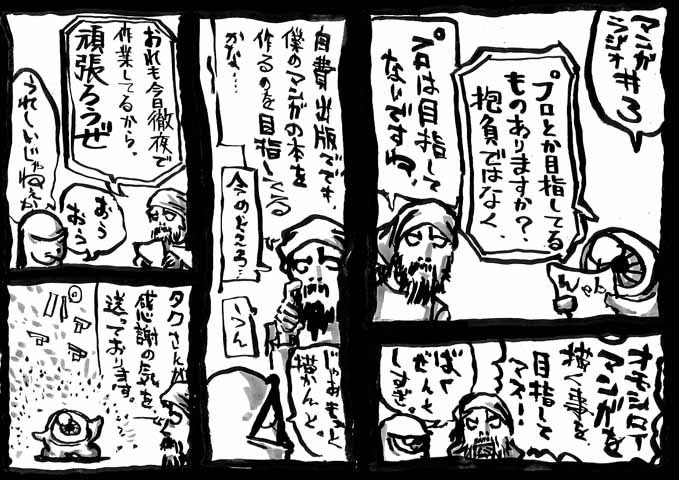 マンガ
ラジオ#3
プロとか目指してる
ものありますか?、
抱負ではなく、
んやん
プロは目指して
ないですね、
オモシロー
マンガを
描く事を
目指して
マス!
ばく
ぜんと
しすぎ。
自費出版でもでも、
僕のマンガの本を
作るのを目指してる
かな…
今のところ…
うん
じゃあもっと
描かんと。
おれも今日徹夜で
作業してるから、
頑張ろうぜ
おう
おう
うれしいじゃねぇか
タクさんが
感謝の気を
送っております。